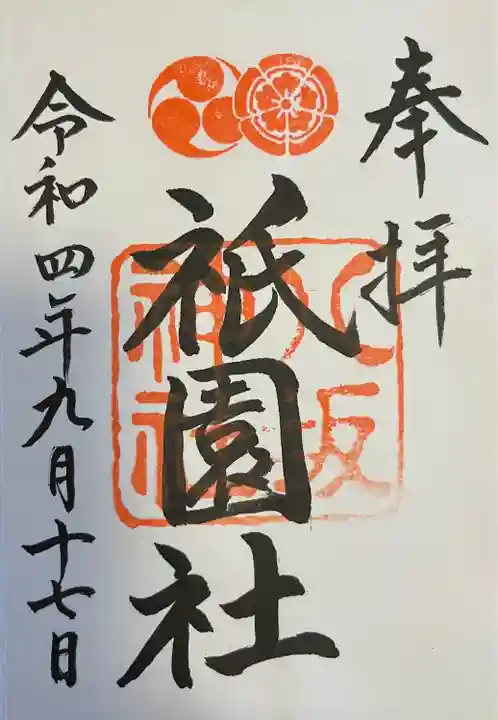 奉拝
八坂
神社
祇園社
令和四年九月十七日